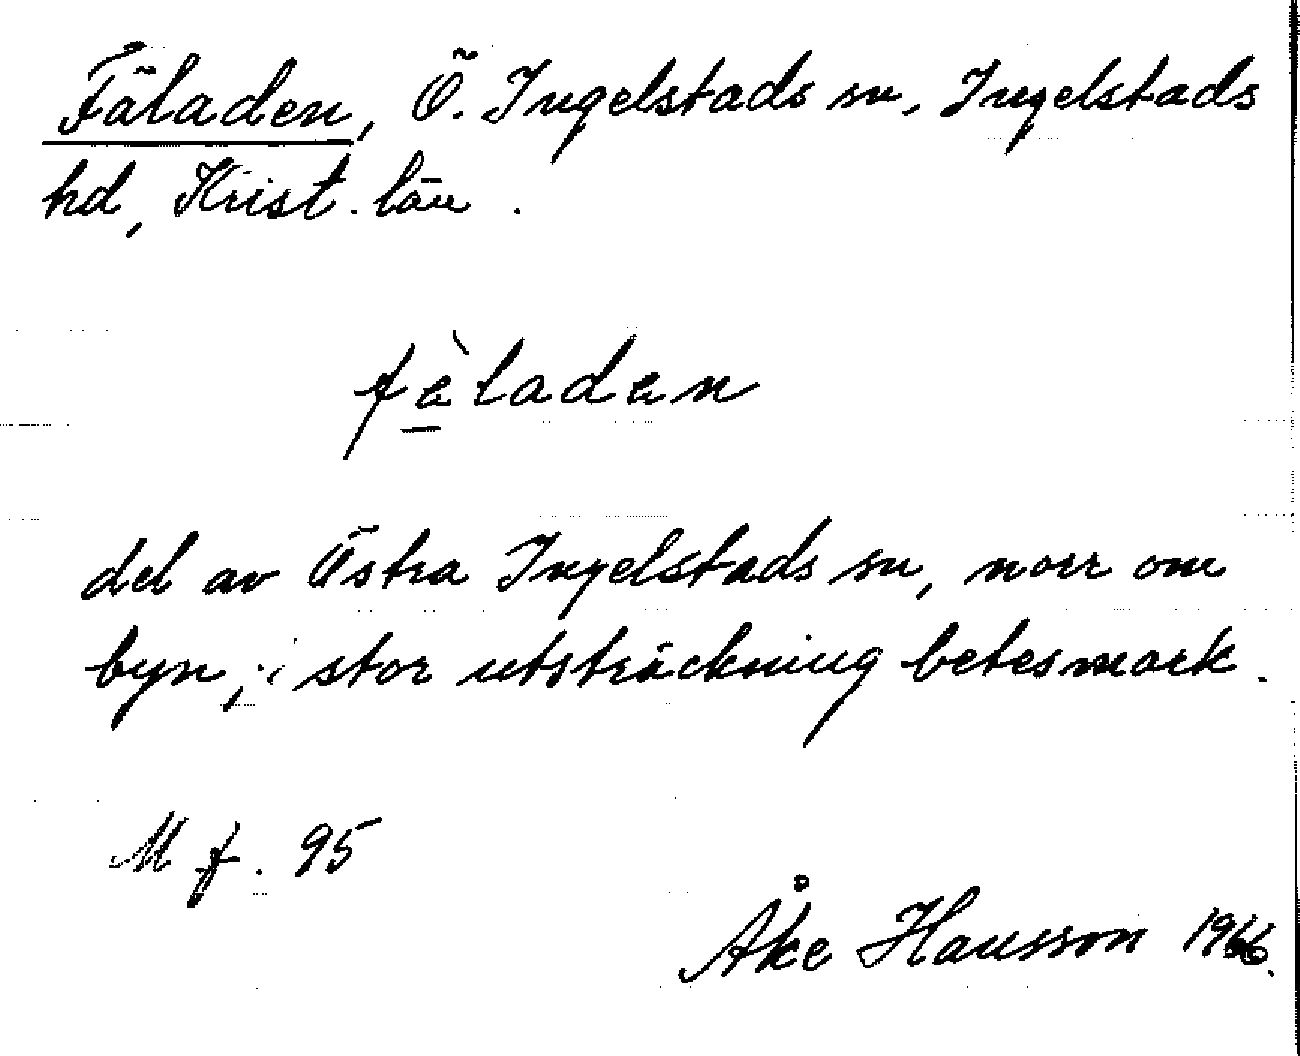 Fäladen, Ö. Ingelstads sn, Ingelstads
hd, Krist. län.
fè̱laden
del av Östra Ingelstads sn, norr om
byn, i stor utsträckning betesmark.
M f. 95
Åke Hansson 1966.